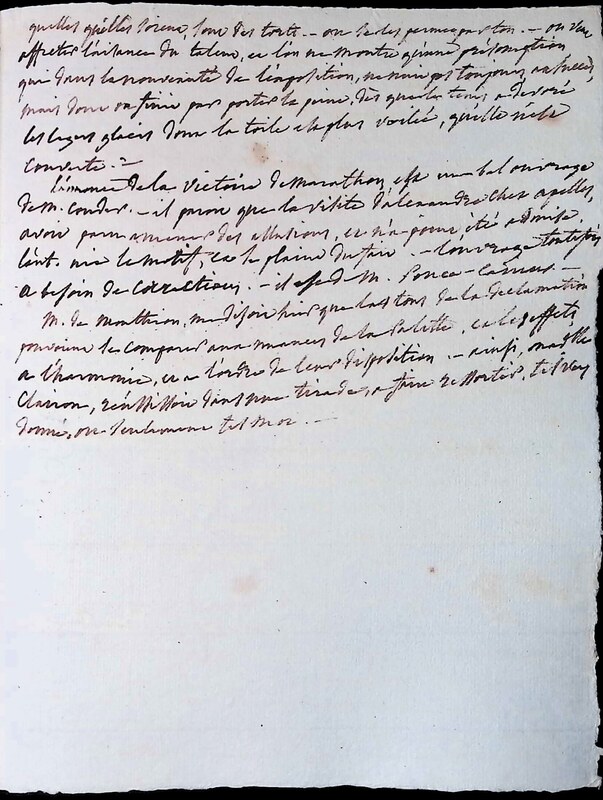 quelles qu'elles soient, sont des torts — on ne les permet pas ton. — on veut
affecter l'aisance du talent, et l'on ne montre qu'une présomption
qui dans la nouveauté de l'exposition, ne nuit pas toujours au succès,
mais dont on finit par porter la peine, dès que le tems a dévoré
les legers glacis dont la toile la plus voilée, qu'elle
couverte. —
de la victoire de Marathon, est un bel ouvrage
de M. Couder. — il paroit que la visite d'alexandre chez apelles,
avoit parmi des allusions, et n'a point été admise.
le motif, et le plaine du fair. — l'ouvrage toutefois
a besoin de corrections. — il est de M. Ponce-Camus —
M. de monthion, me disoit hier que les tons de la declamation
pouvoient se comparer aux nuances de la palette, et les effets
a l'harmonie, et a l'ordre de leur disposition. — ainsi, Mlle
Clairon, réussissoit dans une tirade, a faire ressortir, tel vers
donné, ou seulement tel mot. —